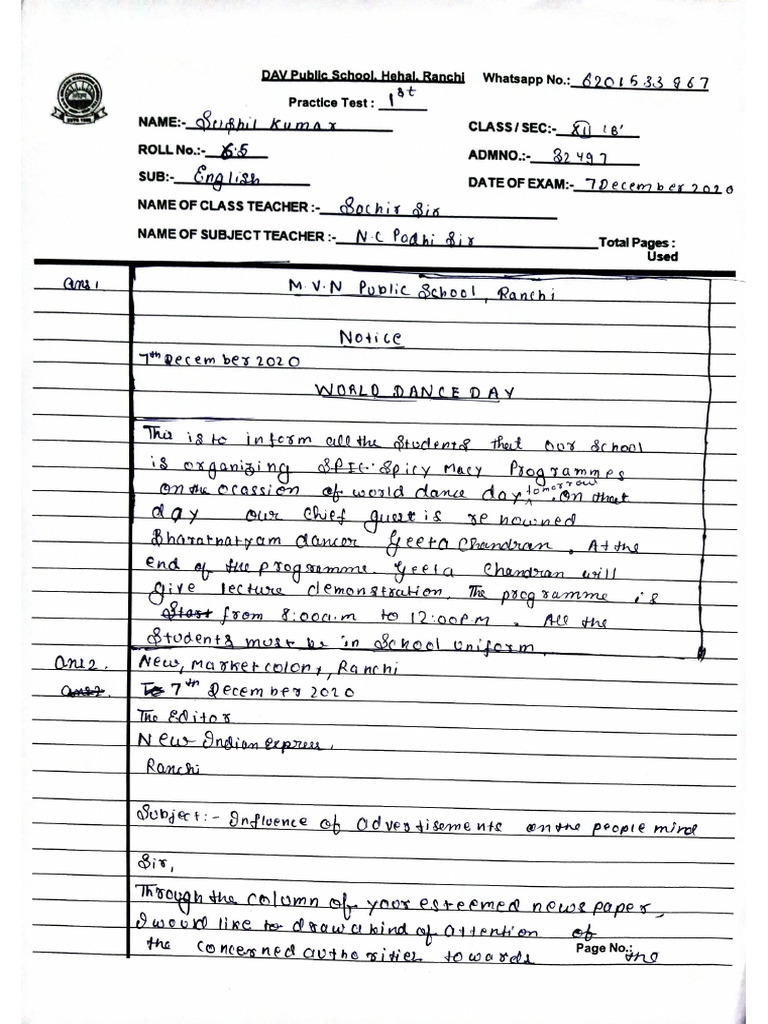 DAV Public School, Hehal, Ranchi Whatsapp No.: 6201533967
Practice Test : 1st
NAME:- Sushil Kumar CLASS / SEC:- XII 'B'
ROLL No.:- 65 ADMNO.:- 32497
SUB:- English DATE OF EXAM:- 7 December 2020
NAME OF CLASS TEACHER :- Sir
NAME OF SUBJECT TEACHER :- N.C Padhi Sir Total Pages :
Used
Ans 1 M.V.N Public School, Ranchi
Notice
7th December 2020
WORLD DANCE DAY
This is to inform all the students that our school
is organizing Spicy Macy Programmes
on the ocassion of world dance day tomorrow. On that
day our chief guest is renowned
Bharatnatyam dancer Geeta Chandran. At the
end of the programme. Geeta Chandran will
give lecture demonstration. The programme is
Start from 8:00a.m to 12:00P.M. All the
Students must be in School uniform.
Ans 2. New, Market colony, Ranchi
Ans 2. To 7th December 2020
The Editor
New Indian express,
Ranchi
Subject:- Influence of advertisements on the people mind
Sir,
Through the column of your esteemed newspaper,
I would like to draw a kind of attention of
the concerned authorities towards the
Page No.: